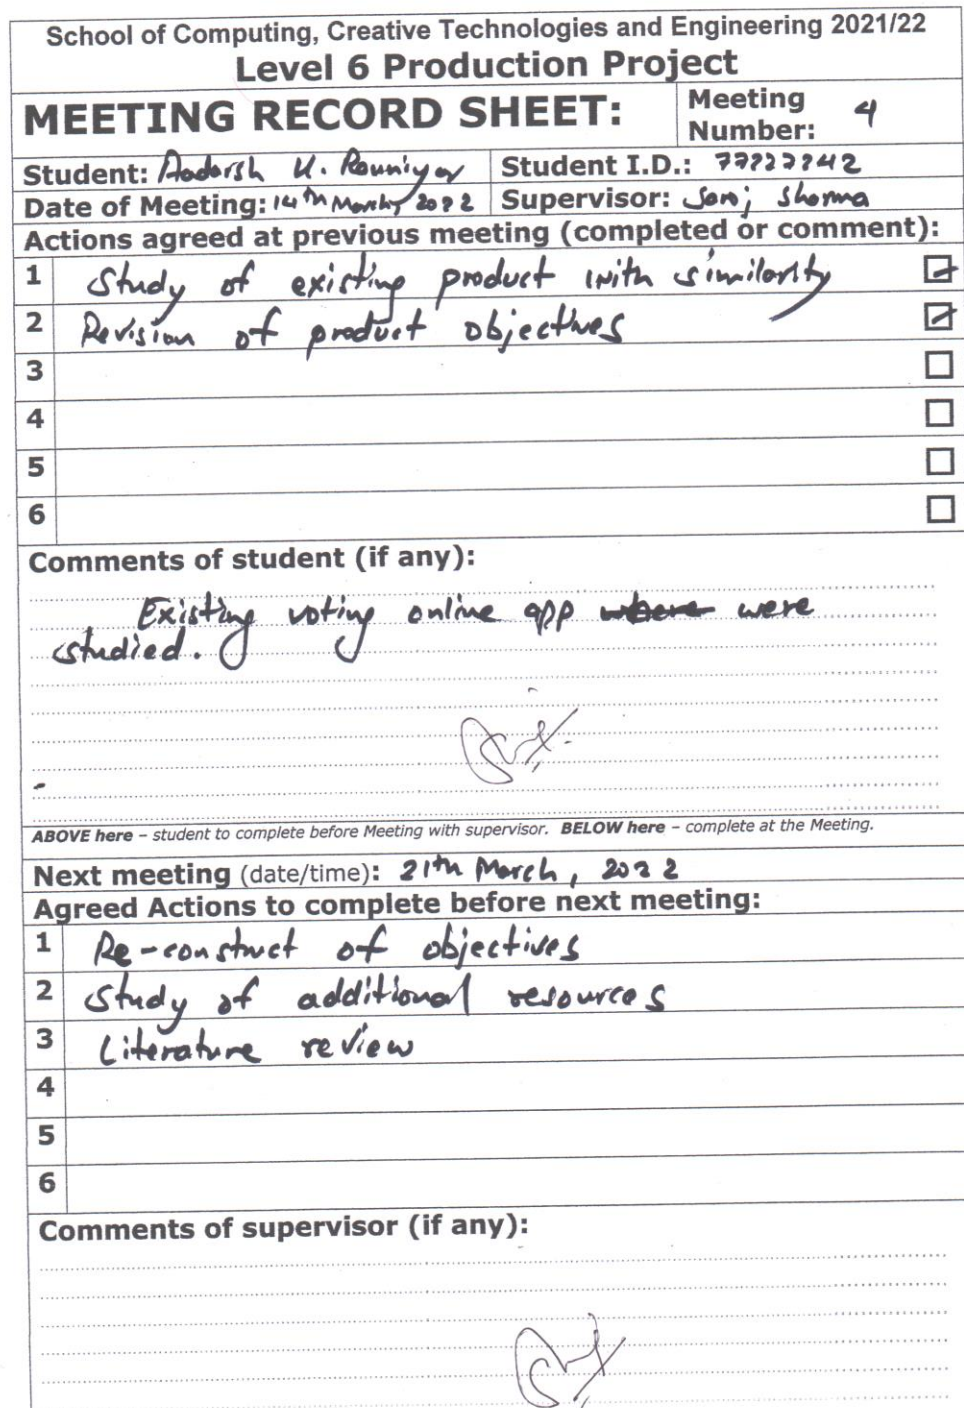 School of Computing, Creative Technologies and Engineering 2021/22
Level 6 Production Project
MEETING RECORD SHEET:
Meeting Number: 4
Student: Aadarsh K. Rouniyar
Student I.D.:
Date of Meeting: 14th March, 2022
Supervisor: Saroj Sharma
Actions agreed at previous meeting (completed or comment):
1 Study of existing product with similarity
2 Revision of product objectives
3
4
5
6
Comments of student (if any):
Existing voting online app where were
studied.
ABOVE here – student to complete before Meeting with supervisor. BELOW here – complete at the Meeting.
Next meeting (date/time): 21th March, 2022
Agreed Actions to complete before next meeting:
1 Re-construct of objectives
2 Study of additional resources
3 Literature review
4
5
6
Comments of supervisor (if any):